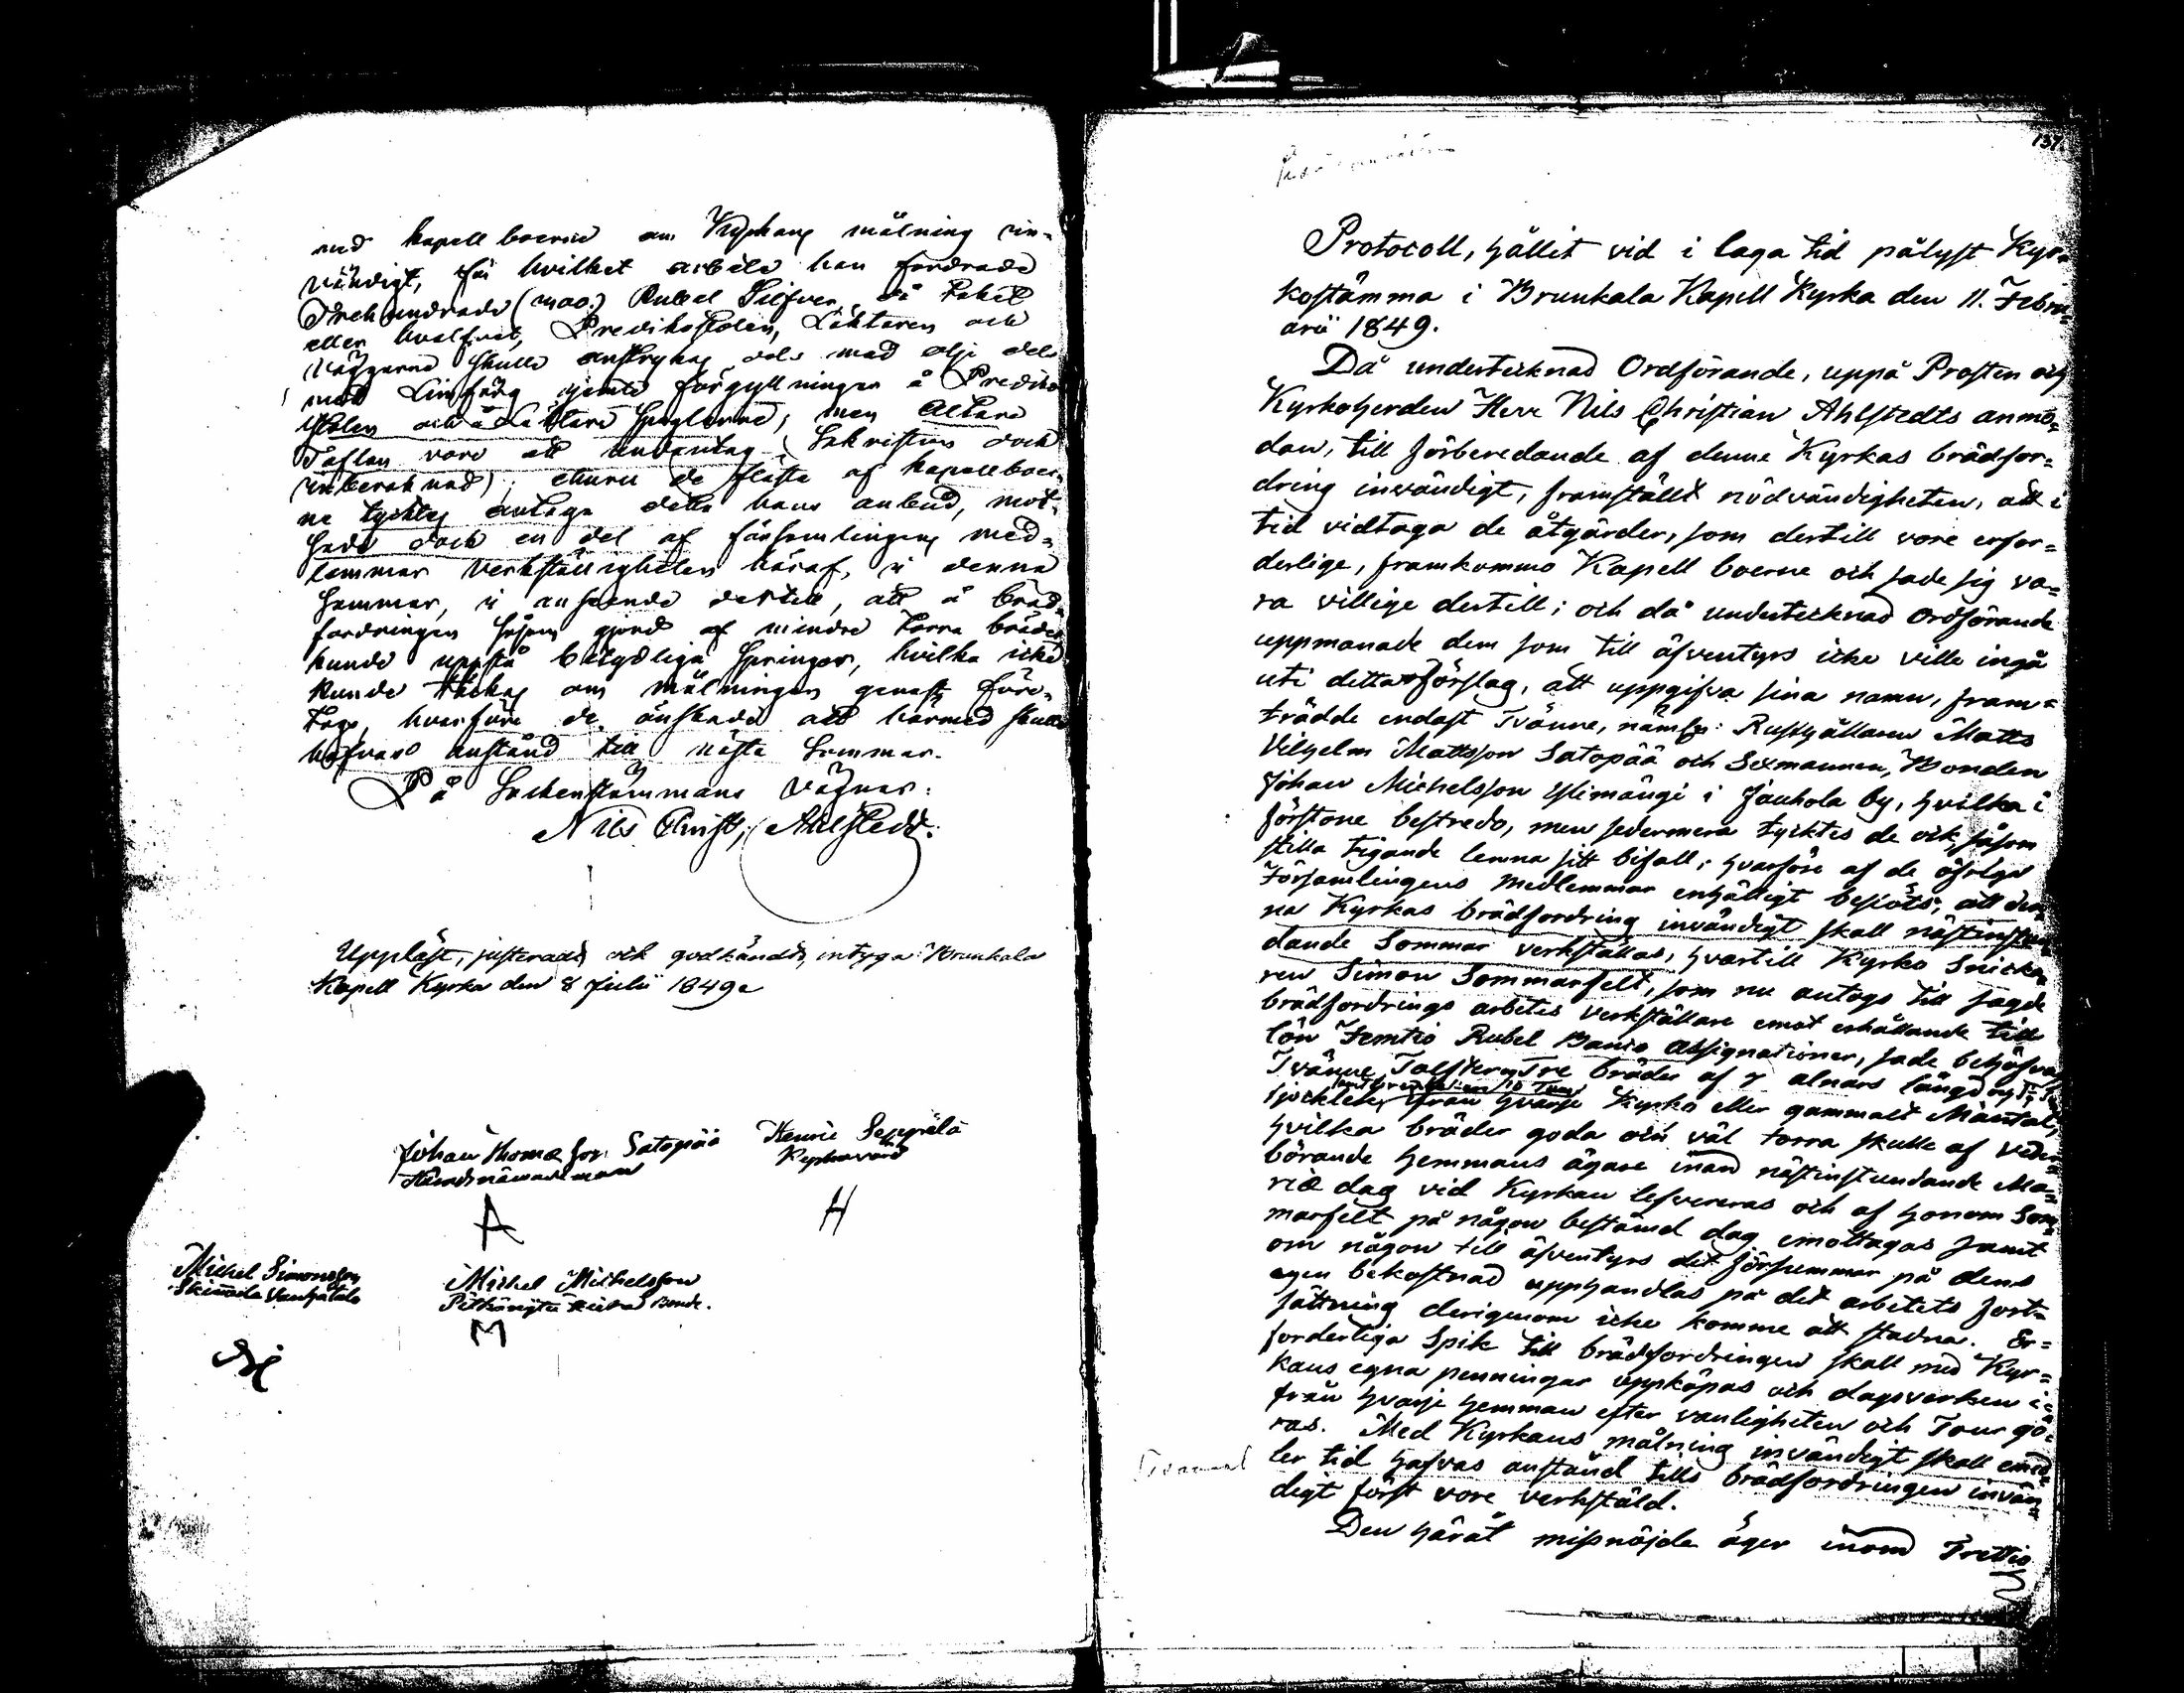 med kapell boerne om Kyrkans målning in-
vändigt, för hvilket arbete han fordrade
Trehundrade (300.) Rubel Silfver, då taket
eller hvalfvet, Predikstolen, Läktaren och
Väggarne skulle anstrykas dels med olje dels
med Limfärg jemte förgyllningen å Predik-
stolen och å Läktare Speglarne, men Altare
Taflan vore att undantag (Sakristian dock
inberäknad); ehuru de flesta af kapellboer-
ne tycktes antaga detta hans anbud, mot-
sade dock en del af församlingens med-
lemmar verkställigheten häraf, i denna
sommar, i anseende dertill, att å bräd-
fordringen såsom gjord af mindre torra bräder
kunde uppstå betydliga springor, hvilka icke
kunde täckas om målningen genast före-
togs, hvarföre de önskade att härmed skulle
hafvas anstånd till nästa Sommar.
På Sockenstämmans vägnar:
Nils Christ. Ahlstedt.
Uppläst, justeradt och godkändt, intyga: Brunkala
Kapell Kyrka den 8 Julii 1849.
Johan Thomasson Satopää Henric Seppälä
Häradsnämndeman Kyrkovärd
A H
Michel Simonsson Michel Michelsson
Vanhatalo Bonde.
M
137.
Protocoll, hållit vid i laga tid pålyst Kyr-
kostämma i Brunkala Kapell Kyrka den 11. Febru-
arii 1849.
Då undertecknad Ordförande, uppå Prosten och
Kyrkoherden Herr Nils Christian Ahlstedts anmo-
dan, till förberedande af denne Kyrkas brädfor-
dring invändigt, framställt nödvändigheten, att i
tid vidtaga de åtgärder, som dertill vore erfor-
derlige, framkommo Kapell boerne och sade sig va-
ra villige dertill; och då undertecknad Ordförande
uppmanade dem som till äfventyrs icke ville ingå
uti detta förslag, att uppgifva sina namn, fram-
trädde endast Tvänne, nämln: Rusthållaren Matts
Vilhelm Mattsson Satopää och Sexmannen, Bonden
Johan Michelsson Ylimängi i Jauhola by, hvilka i
förstone bestredo, men sedermera tycktes de ock, såsom
stilla tigande lemna sitt bifall; hvarföre af de öfriga
Församlingens medlemmar enhälligt beslöts, att den-
na Kyrkas brädfordring invändigt skall nästinstun-
dande Sommar verkställas, hvartill Kyrko Snicka-
ren Simon Sommarfelt, som nu antogs till sagde
brädfordrings arbetes verkställare emot erhållande till
lön Femtio Rubel Banco Assignationer, sade behöfvas
Tvänne Tolfter, Tre bräder af 7 alnars längd och
tjocklek från hvarje Kyrko eller gammalt Mantal,
hvilka bräder goda och väl torra skulle af veder-
börande hemmans ägare innan nästinstundande Ma-
riæ dag vid Kyrkan lefvereras och af honom Som-
marfelt på någon bestämd dag emottagas samt
om någon till äfventyrs det försummar på dens
egen bekostnad upphandlas på det arbetets fort-
sättning derigenom icke komme att stadna. Er-
forderliga Spik till brädfordringen skall med Kyr-
kans egna penningar uppköpas och dagsverken i-
från hvarje hemman efter vanligheten och Tour gö-
ras. Med Kyrkans målning invändigt skall emed-
ler tid hafvas anstånd tills brädfordringen invän-
digt först vore verkställd.
Den häråt missnöjde äger inom Trettio